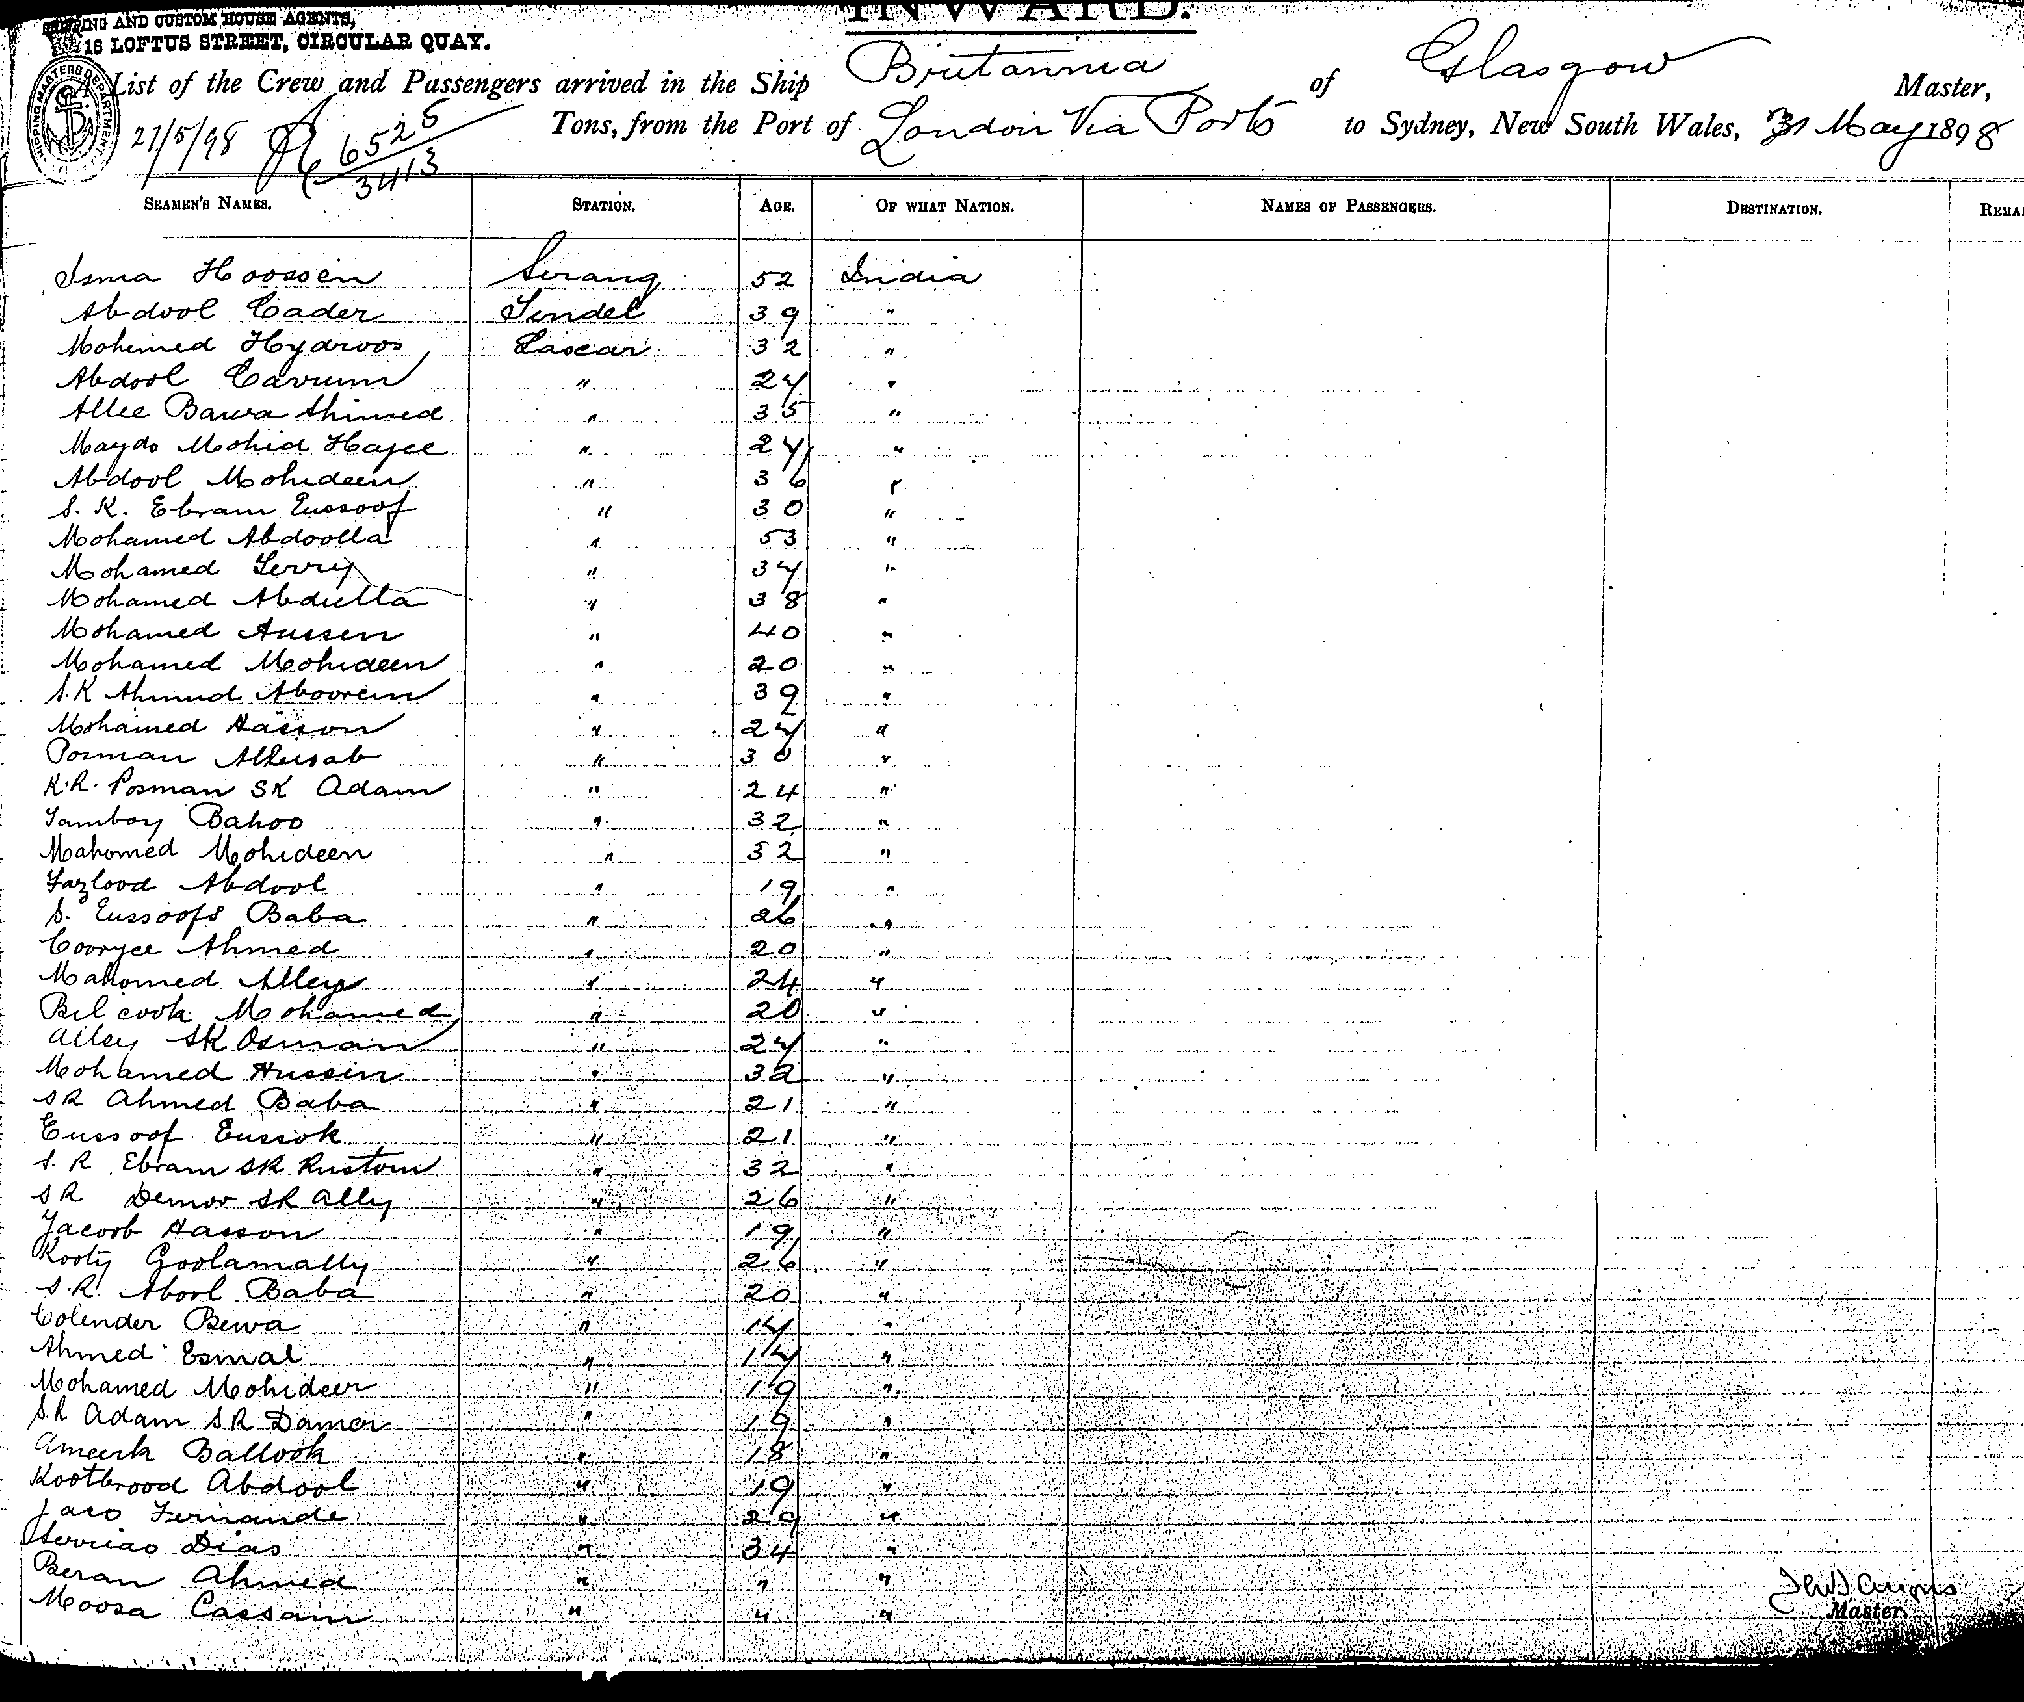 INWARD.
SHIPPING AND CUSTOM HOUSE AGENTS,
16 LOFTUS STREET, CIRCULAR QUAY.
SHIPPING MASTERS DEPARTMENT
List of the Crew and Passengers arrived in the Ship Britannia of Glasgow Master,
6525 / 3413 Tons, from the Port of London Via Ports to Sydney, New South Wales, 31 May 1898
SEAMEN'S NAMES. STATION. AGE. OF WHAT NATION. NAMES OF PASSENGERS. DESTINATION.
Isma Hoossen Serang 52 India
Abdool Cader Tindel 39 "
Mohimed Hydroos Lascar 32 "
Abdool Carrum " 24 "
Allee Bawa Ahimed " 35 "
Maydo Mohid Hajee " 24 "
Abdool Mohideen " 36 "
S. K. Ebram Eussoof " 30 "
Mohamed Abdoolla " 53 "
Mohamed " 34 "
Mohamed Abdulla " 38 "
Mohamed Aussen " 40 "
Mohamed Mohideen " 20 "
S. K Ahmud " 39 "
Mohamed Hasson " 24 "
Posman " 30 "
K. R. Posman SK Adam " 24 "
Tamboy Bahoo " 32 "
Mahomed Mohideen " 32 "
Fazlood Abdool " 19 "
S. Eussoofs Baba " 26 "
Cooryee Ahmed " 20 "
Mahomed Alley " 24 "
Bilcook Mohamed " 20 "
Alley SK Osman " 24 "
Mohamed Hussin " 32 "
SR Ahmed Baba " 21 "
Eussoof Eussok " 21 "
S. R Ebram SR Rustom " 32 "
SR Demor SR Ally " 26 "
Jacoob Hasson " 19 "
Rooty Goolamally " 26 "
S. R. Abool Baba " 20 "
Colender Bewa " 14 "
Ahmed Esmal " 14 "
Mohamed Mohideen " 19 "
SR Adam SR Damer " 19 "
Ameerk Ballook " 18 "
Kootbrood Abdool " 19 "
Jaco Fernande " 29 "
Dias " 34 "
Beran Ahmed " " "
Moosa Cassam " " "
Master.